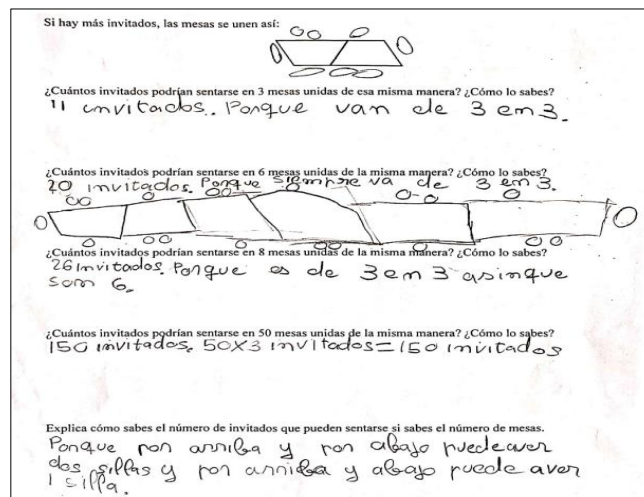 Si hay más invitados, las mesas se unen así:
¿Cuántos invitados podrían sentarse en 3 mesas unidas de esa misma manera? ¿Cómo lo sabes?
11 invitados. Porque van de 3 em 3.
¿Cuántos invitados podrían sentarse en 6 mesas unidas de la misma manera? ¿Cómo lo sabes?
20 invitados. Porque siempre va de 3 en 3.
¿Cuántos invitados podrían sentarse en 8 mesas unidas de la misma manera? ¿Cómo lo sabes?
26 invitados. Porque es de 3 em 3 asinque
som 6.
¿Cuántos invitados podrían sentarse en 50 mesas unidas de la misma manera? ¿Cómo lo sabes?
150 invitados. 50x3 invitados=150 invitados
Explica cómo sabes el número de invitados que pueden sentarse si sabes el número de mesas.
Porque por arriba y por abajo puede aver
dos sillas y por arriba y abajo puede aver
1 silla.